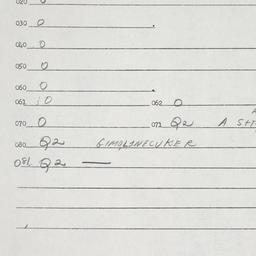 020 0
030 0
040 0
050 0
060 0
061 0 062 0
070 0 071 Q2 A
080 Q2
081 Q2 —